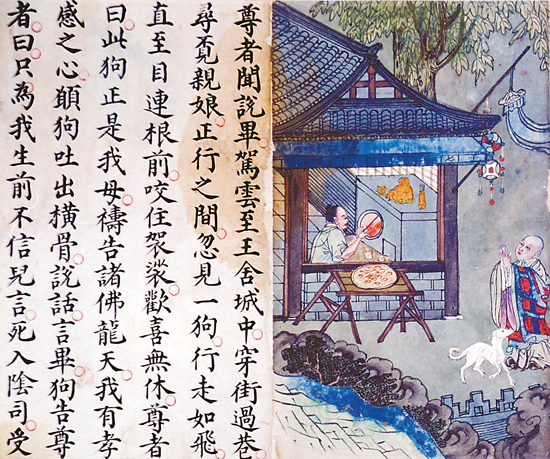 尊者聞說畢駕雲至王舍城中穿街過巷
尋覔親娘正行之間忽見一狗行走如飛
直至目連根前咬住袈裟歡喜無休尊者
曰此狗正是我母禱告諸佛龍天我有孝
感之心願狗吐出橫骨說話言畢狗告尊
者曰只為我生前不信兒言死入陰司受